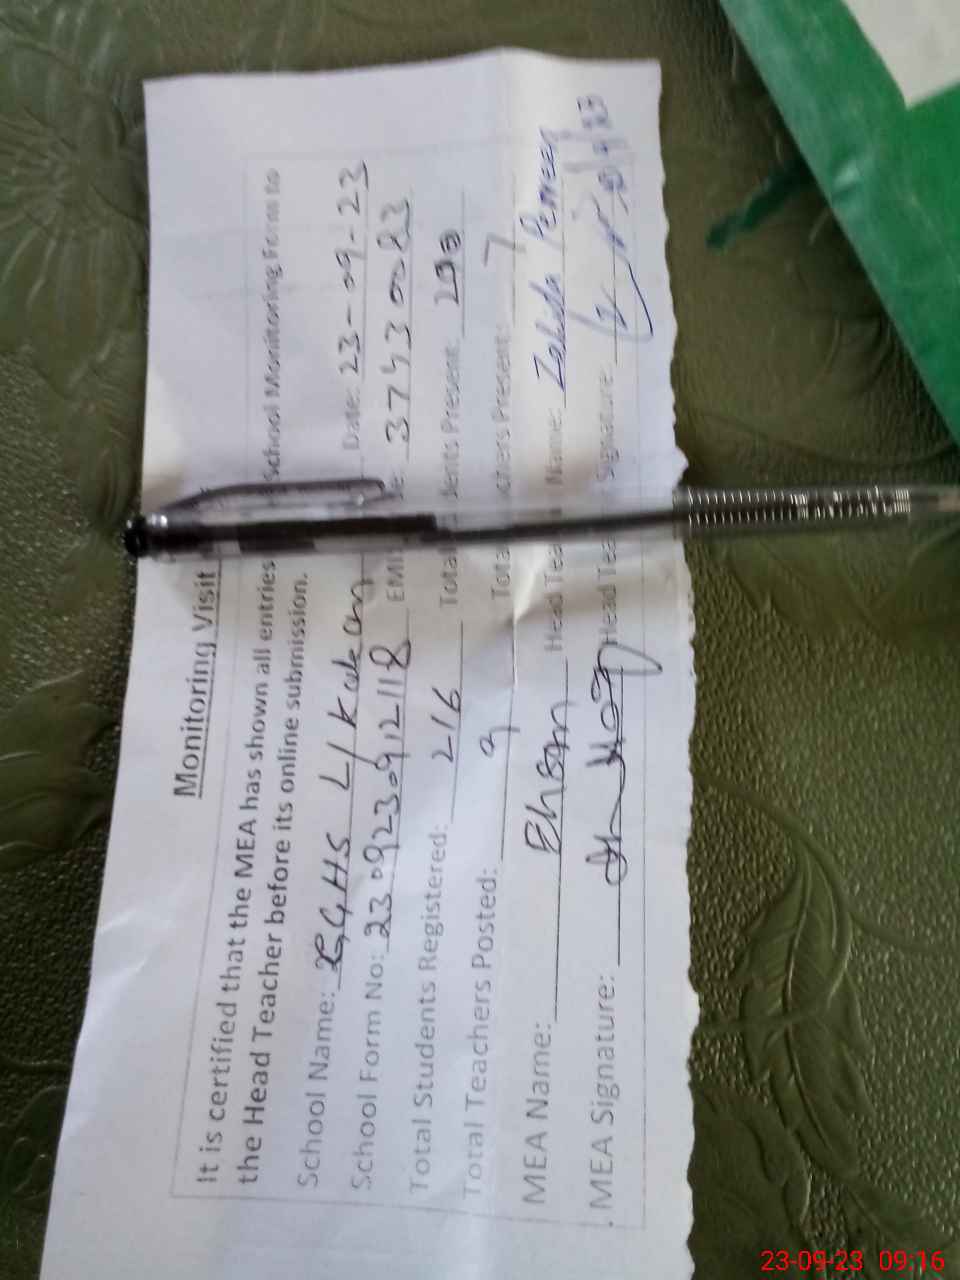 Monitoring Visit
It is certified that the MEA has shown all entries School Monitoring Form to
the Head Teacher before its online submission.
School Name: GGHS Date: 23-09-23
School Form No: 2309230912118 EMI 37430083
Total Students Registered: 216 Total dents Present:
Total Teachers Posted: 9 Tota chers Present: 7
MEA Name: Ehsan Head Tea Name: Zahida Perveen
MEA Signature: Head Tea Signature:
23-09-23 09:16